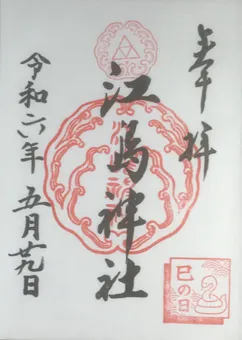 奉拝
江島神社
令和六年 五月廿九日
巳の日